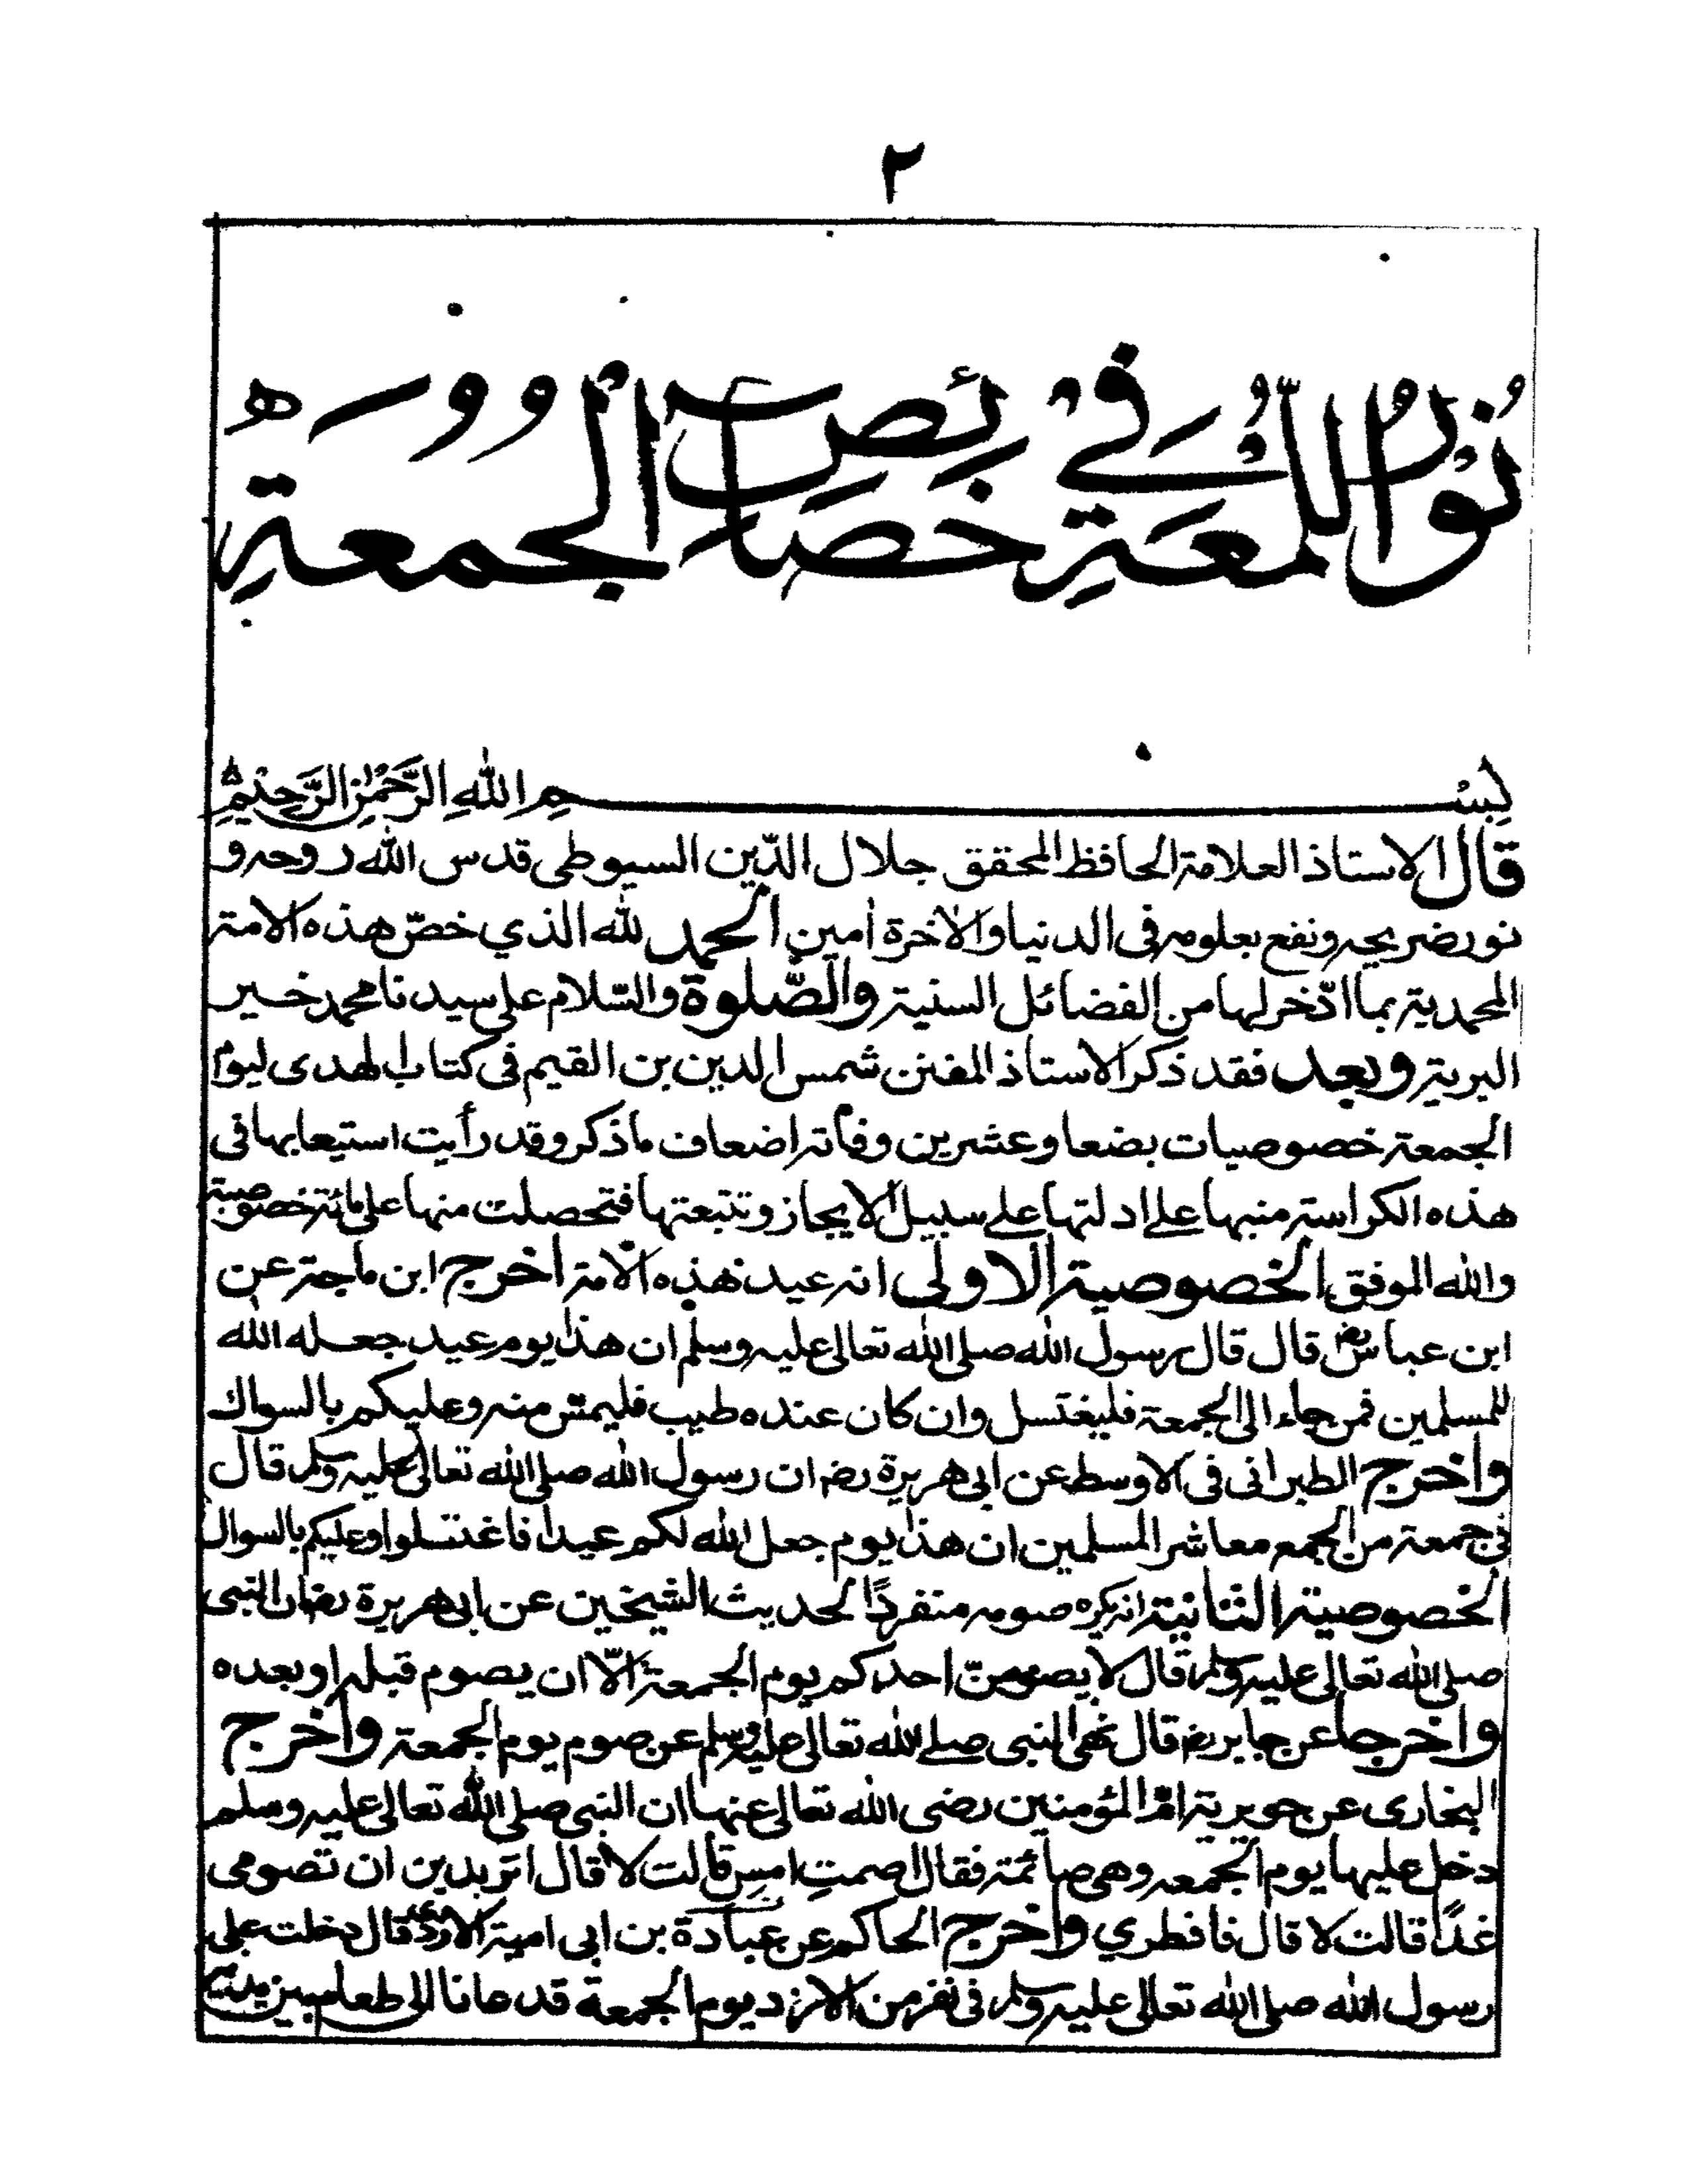 ٢
نُوْرُ اللُّمْعَةِ فِي خَصَائِصِ الْجُمعَةِ
بِسْمِ اللهِ الرَّحْمٰنِ الرَّحِيْمِ
قال الاستاذ العلامة الحافظ المحقق جلال الدّين السيوطى قدس الله روحه و
نور ضريحه ونفع بعلومه فى الدنيا والاخرة اٰمين الحمد لله الذي خصّ هذه الامة
المحمدية بما ادّخر لها من الفضائل السنية والصّلوة والسّلام على سيدنا محمد خير
البرية وبعد فقد ذكر الاستاذ المفنن شمس الدين بن القيم فى كتاب الهدى ليوم
الجمعة خصوصيات بضعا وعشرين وفاته اضعاف ما ذكر وقد رأيت استيعابها فى
هذه الكراسة منبها على ادلتها على سبيل الايجاز وتتبعتها فتحصلت منها على مائة خصوصية
والله الموفق الخصوصية الاولى انه عيد هذه الامة اخرج ابن ماجة عن
ابن عباس رض قال قال رسول الله صلى الله تعالى عليه وسلم ان هذا يوم عيد جعله الله
للمسلمين فمن جاء الى الجمعة فليغتسل وان كان عنده طيب فليمس منه وعليكم بالسواك
واخرج الطبرانى فى الاوسط عن ابى هريرة رض ان رسول الله صلى الله تعالى عليه وسلم قال
فى جمعة من الجمع معاشر المسلمين ان هذا يوم جعل الله لكم عيدا فاغتسلوا وعليكم بالسواك
الخصوصية الثانية انه يكره صومه منفردًا لحديث الشيخين عن ابى هريرة رض ان النبى
صلى الله تعالى عليه وسلم قال لا يصومنّ احدكم يوم الجمعة الّا ان يصوم قبله او بعده
واخرجا عن جابر رض قال نهى النبى صلى الله تعالى عليه وسلم عن صوم يوم الجمعة واخرج
البخارى عن جويرية ام المؤمنين رضى الله تعالى عنها ان النبى صلى الله تعالى عليه وسلم
دخل عليها يوم الجمعه وهى صائمة فقال اصمتِ امسِ قالت لا قال اتريدين ان تصومى
غدًا قالت لا قال فافطري واخرج الحاكم عن عبادة بن ابى امية الازدى قال دخلت على
رسول الله صلى الله تعالى عليه وسلم فى نفر من الازد يوم الجمعة قد عانا الى طعام بين يديه